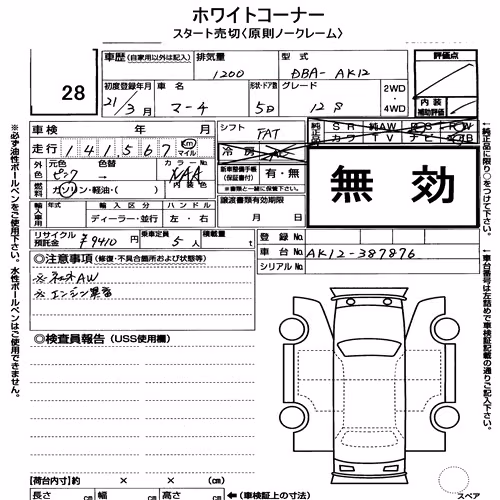 ホワイトコーナー
スタート売切〈原則ノークレーム〉
28
車歴 (自家用以外は記入) 排気量 型式 評価点
1200 DBA-AK12
初度登録年月 車名 形状・ドア数 グレード 2WD 4WD 内装 補助評価
21/3月 マーチ 5D
車検 年 月 シフト FAT
走行 141567 km マイル 冷房
外装色 元色 ピンク 色替 カラーNo. NAA 内装色
燃料 ガソリン・軽油・( )
新車整備手帳(保証書付) 有・無
※書類と一緒に保管下さい。
無効
輸入車用 年式 ディーラー・並行 ハンドル 左・右
譲渡書類有効期限 月 日
リサイクル預託金 ¥9410円 乗車定員 5人 積載量 t
登録No.
車台No. AK12-387876
シリアルNo.
◎注意事項 (修復・不具合箇所および状態等)
※エンジン異音
◎検査員報告 (USS使用欄)
【荷台内寸】約 × × cm
長さ cm 幅 cm 高さ cm ←(車検証上の寸法)
スペア
※必ず油性ボールペンをご使用下さい。水性ボールペンはご使用できません。
←純正品に限り○をつけて下さい。
←車台番号は左詰めで車検証記載の通りご記入下さい。